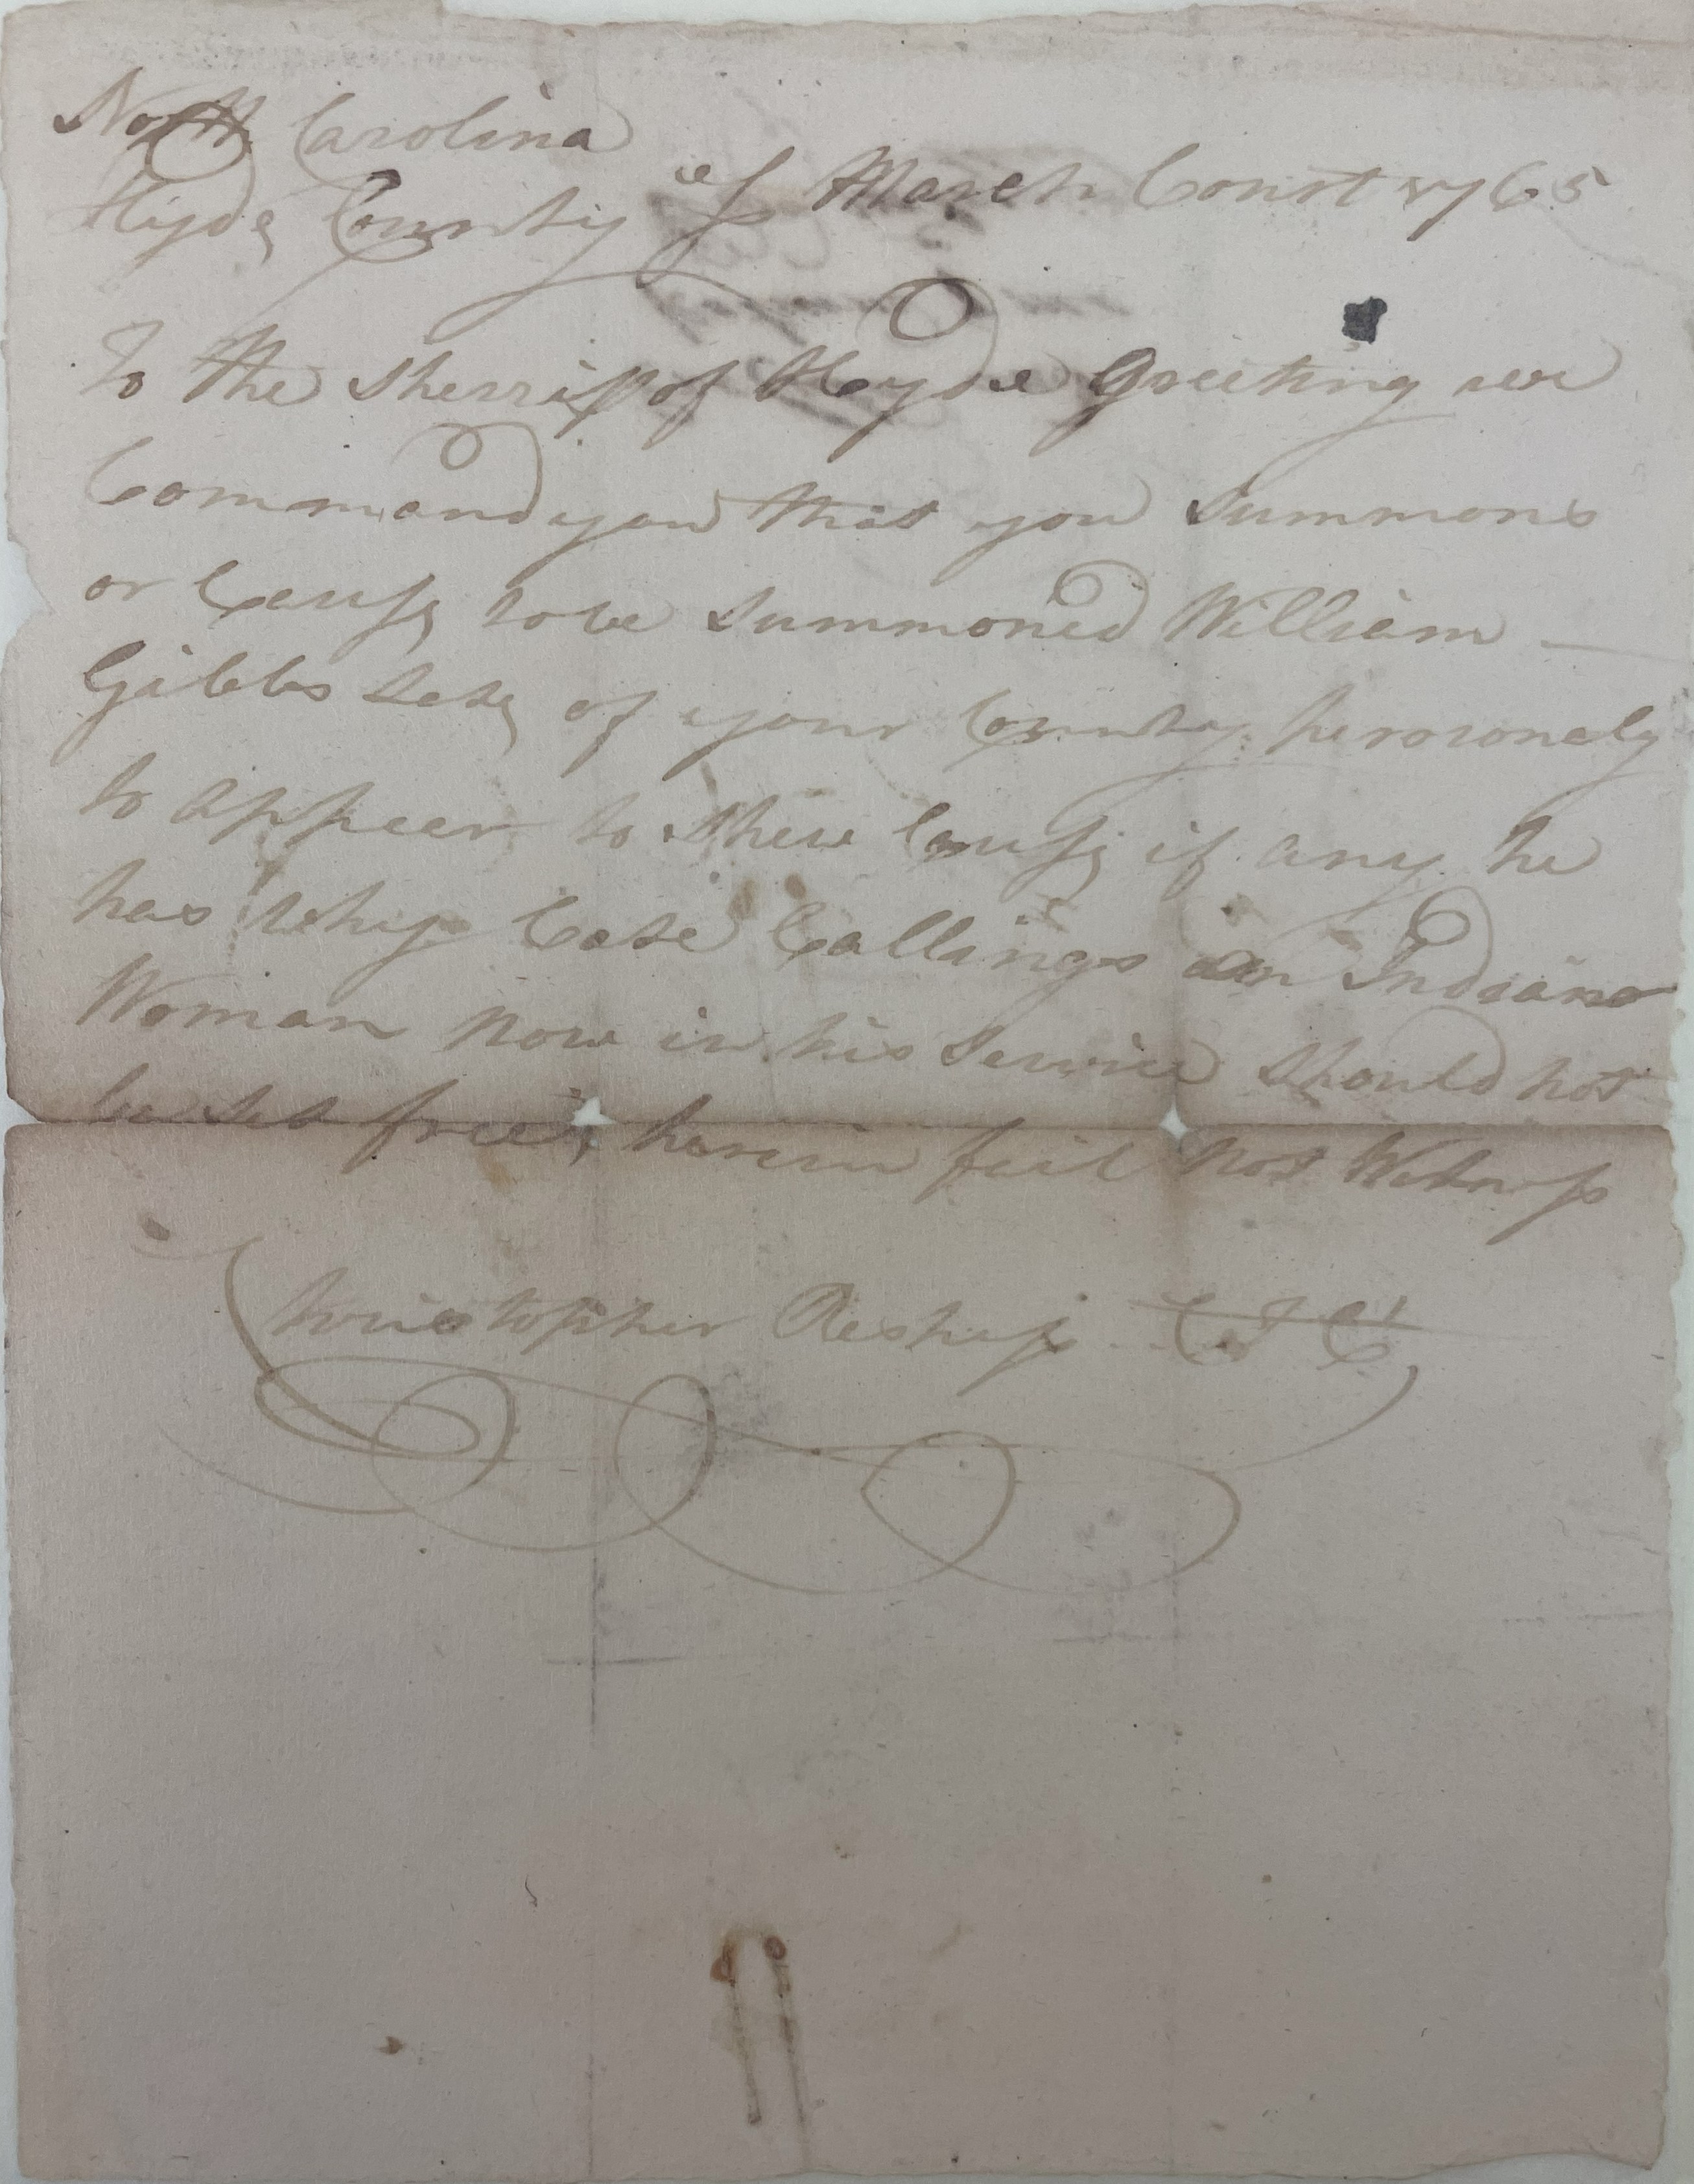 North Carolina
Hyde County ss March Court 1765
To the Sherrif of Hyde Greeting we
Command you that you Summons
or Cause to be Summoned William —
Gibbs late of your County personaly
to appear to shew Cause if any he
has why Cate Collings an Indian
Woman now in his Service should not
be set free, herein fail not Witness
Christopher Respess C J C